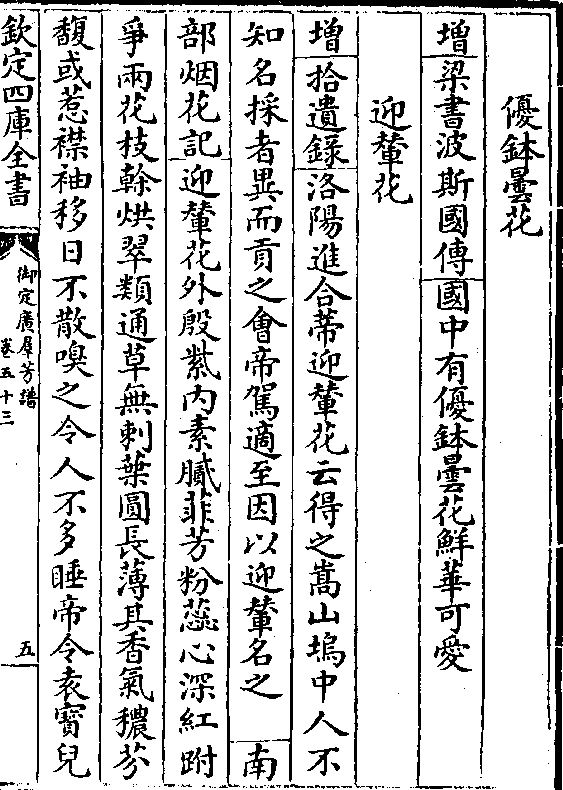 優鉢曇花
增梁書波斯國傳國中有優鉢曇花鮮華可愛
迎輦花
增拾遺錄洛陽進合蒂迎輦花云得之嵩山塢中人不
知名採者異而貢之會帝駕適至因以迎輦名之 南
部烟花記迎輦花外殷紫内素膩菲芳粉蕊心深紅跗
爭兩花枝榦烘翠類通草無刺葉圓長薄其香氣穠芬
馥或惹襟袖移日不散嗅之令人不多睡帝令袁寶兒
欽定四庫全書
御定廣羣芳譜
卷五十三
五